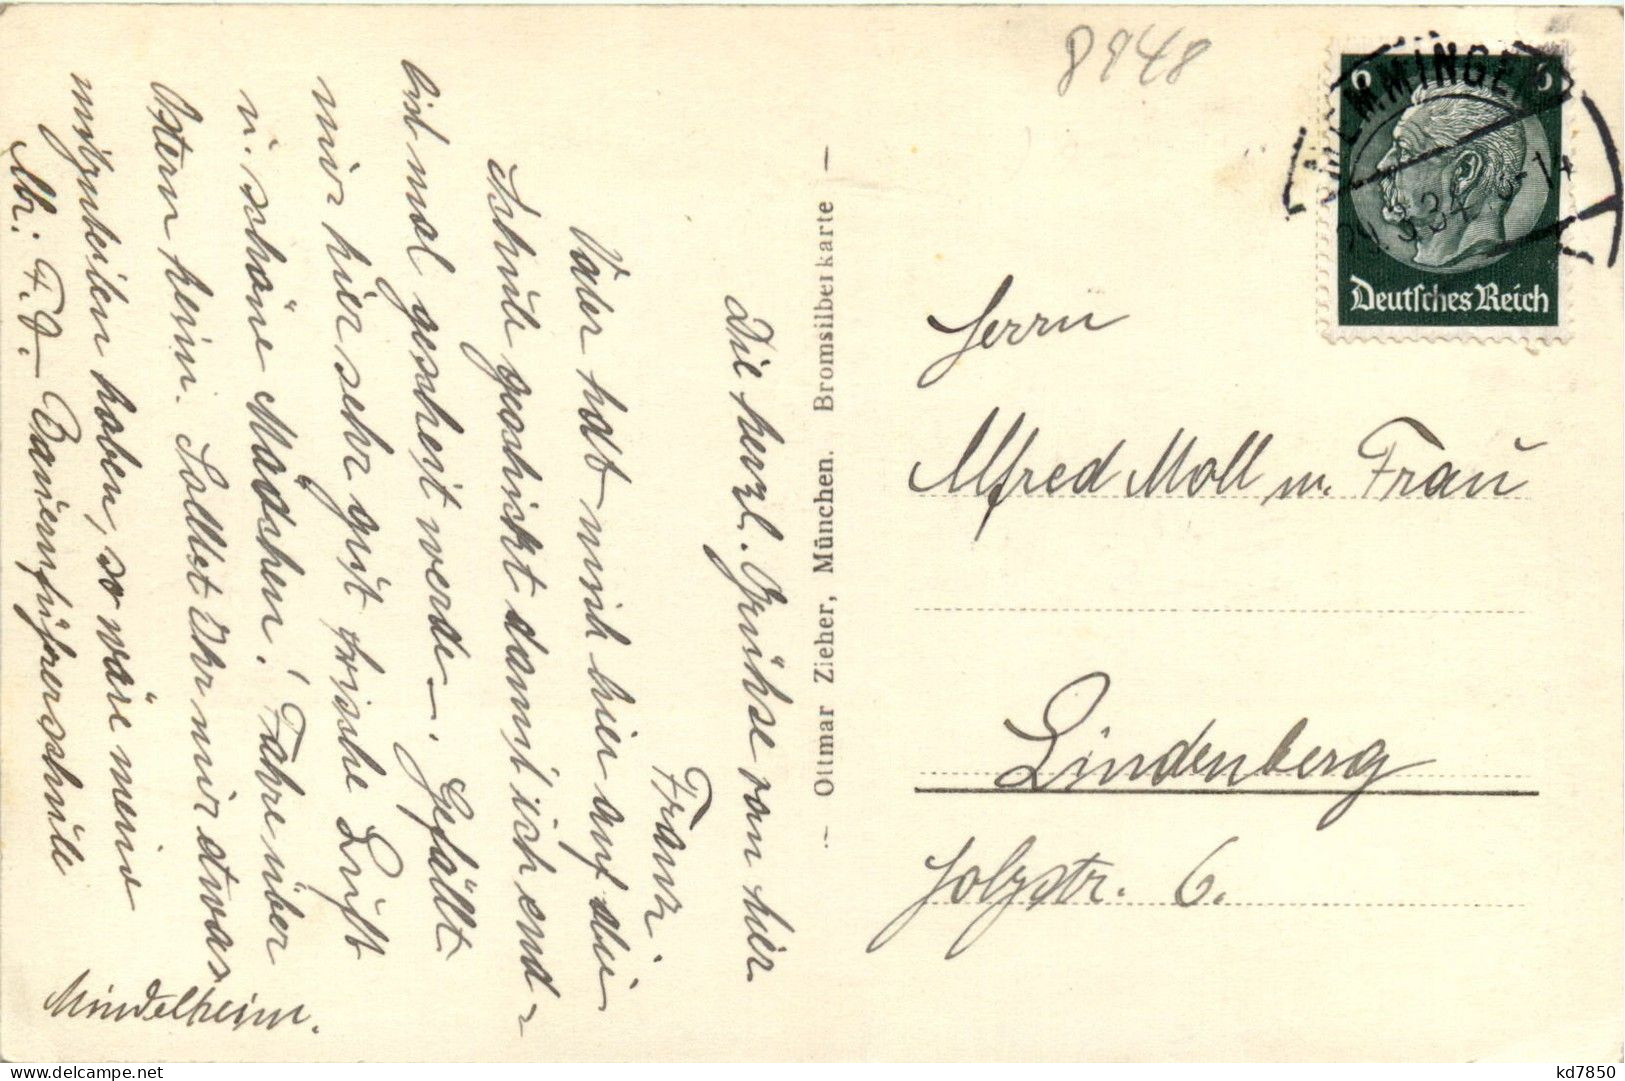 8948
MEMMINGEN
20.3.34. 13-14
6 6
Deutsches Reich
Herrn
Alfred Moll m. Frau
Lindenberg
Holzstr. 6.
- Ottmar Zieher, München. Bromsilberkarte -
Die herzl. Grühse von hier
Franz.
Vater hat mich hier auf die
Schule geschickt damit ich end-
lich mal gescheit werde –. Gefällt
mir hier sehr gut frische Luft
u. schöne Mädchen! Fahre über
Ostern heim. Solltet Ihr mir etwas
mitzuteilen haben, so wäre meine
Adr: F. J. – Bauernführerschule
Mindelheim.
kd7850